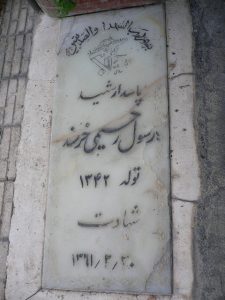 پاسدار شهید
رسول رحیمی خرسند
تولد ۱۳۴۲
شهادت
۱۳۶۱/۳/۳۰